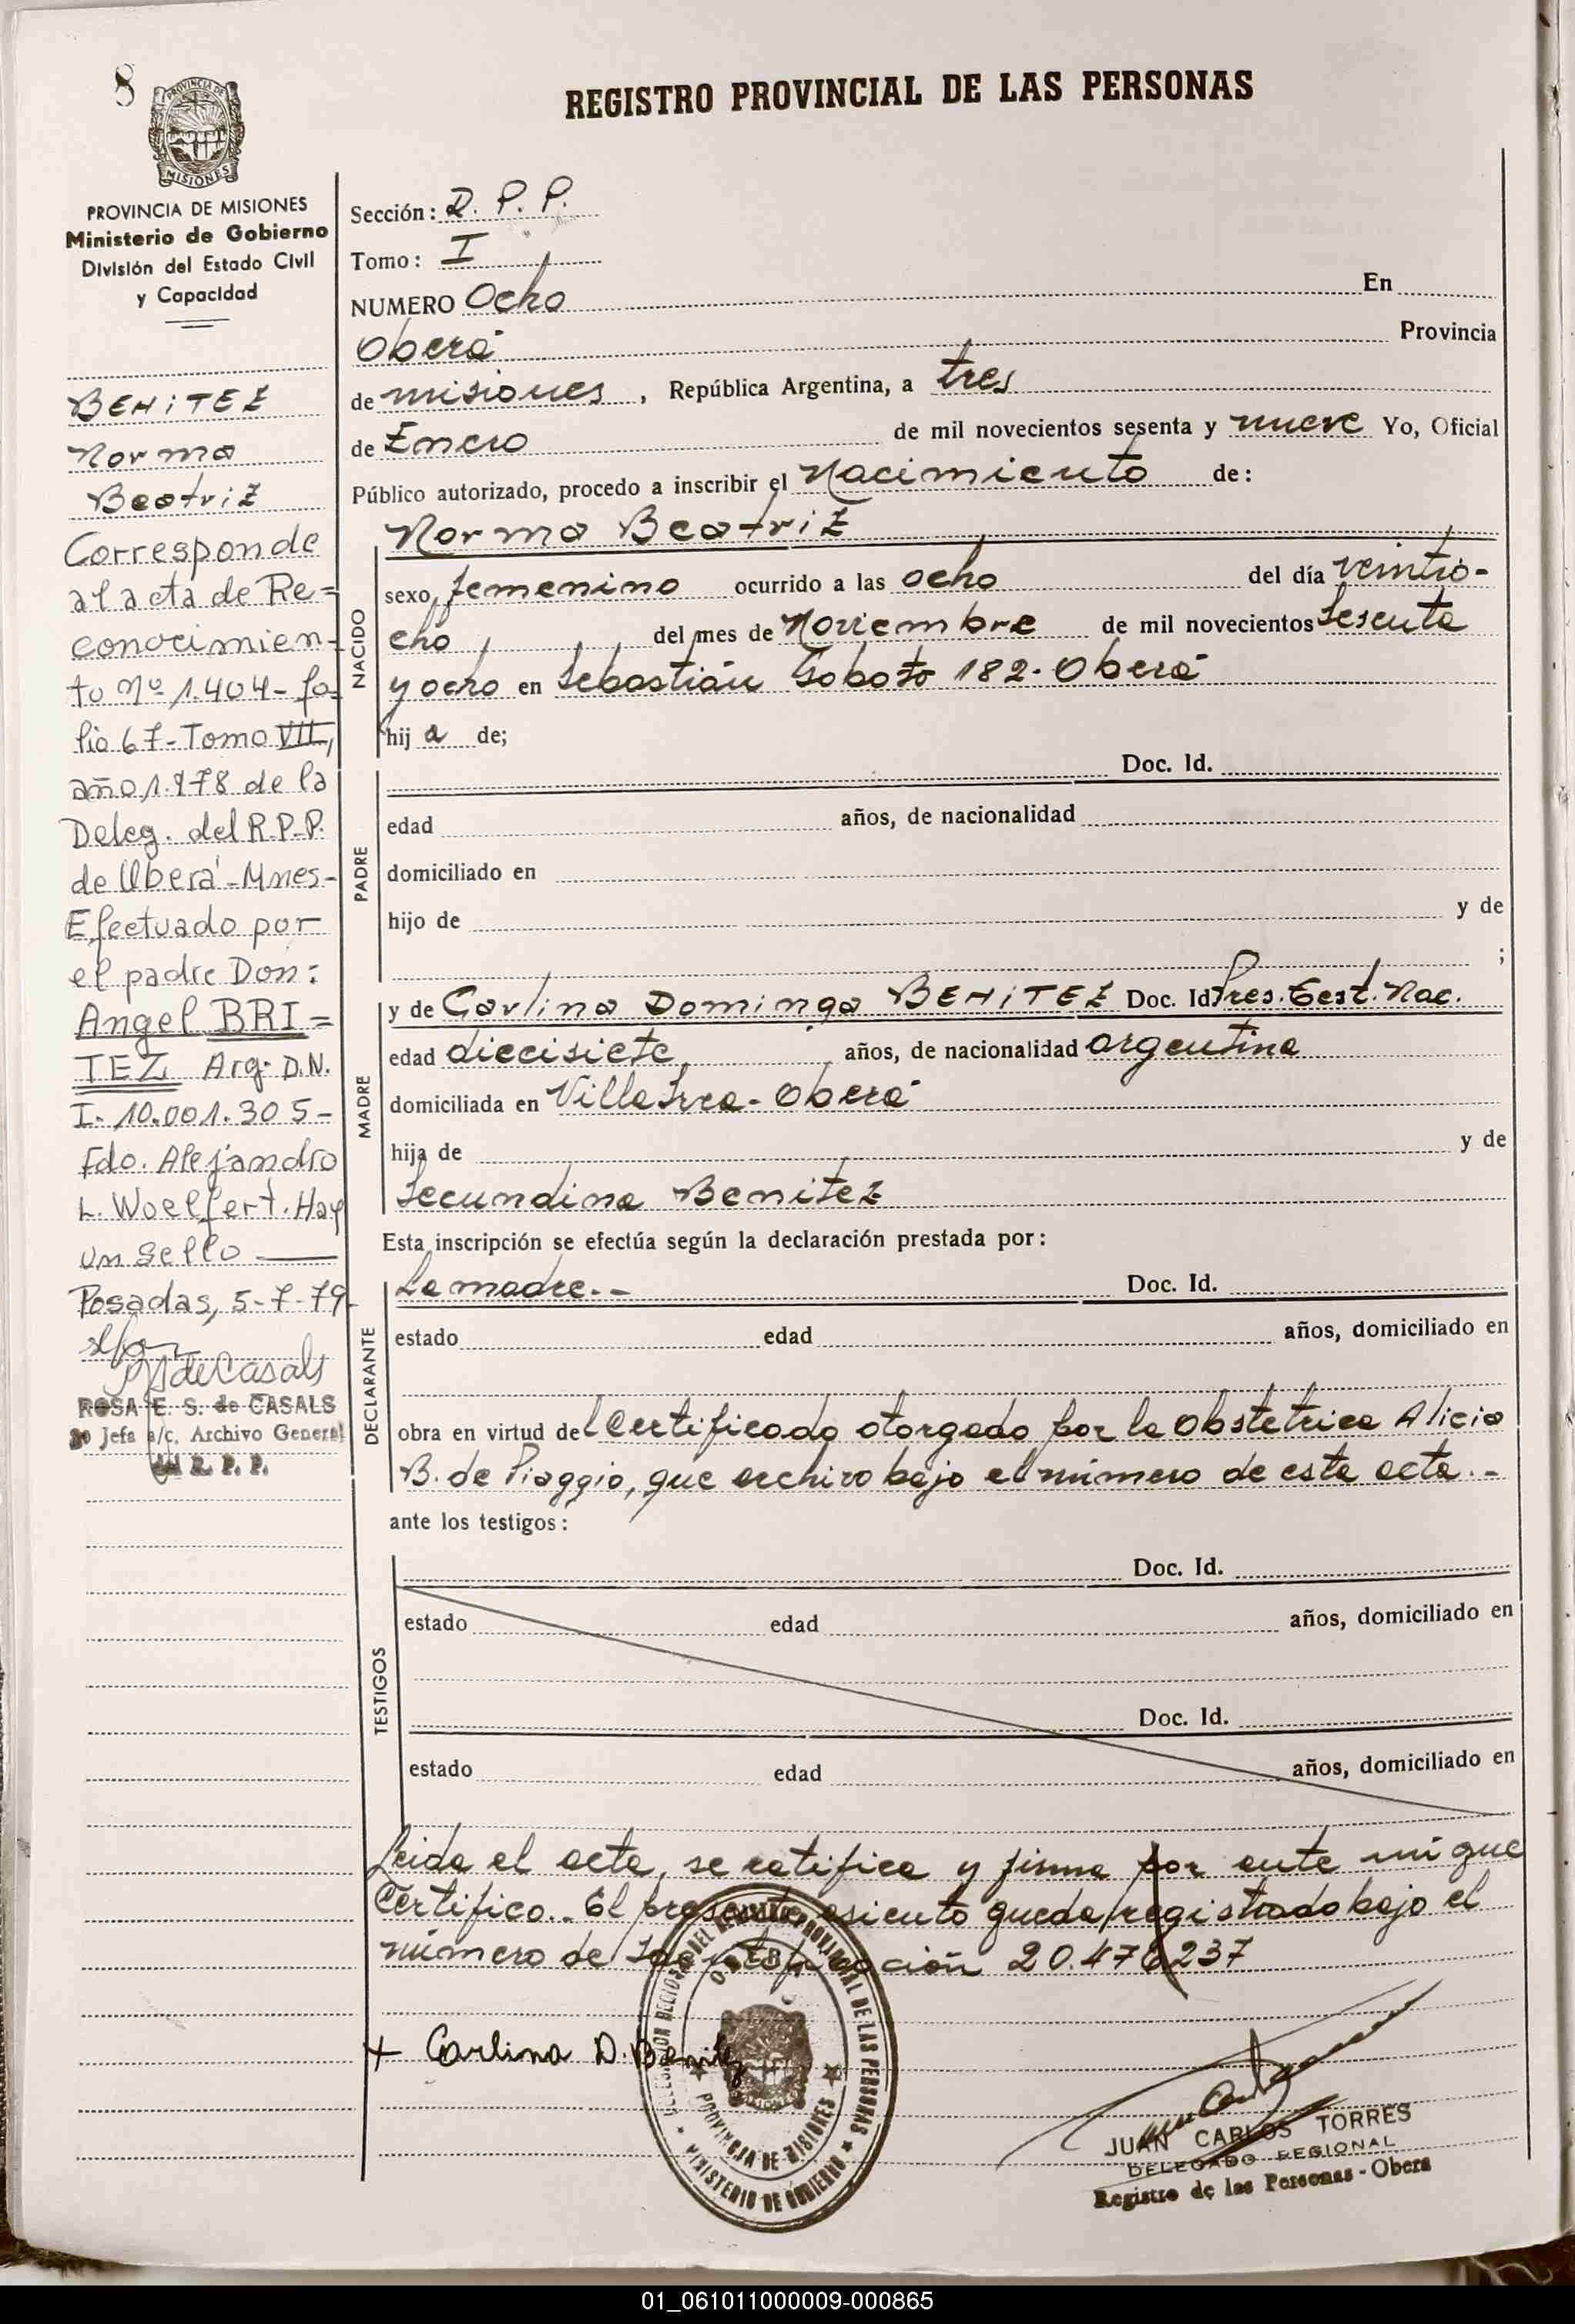 8
REGISTRO PROVINCIAL DE LAS PERSONAS
PROVINCIA DE MISIONES
Ministerio de Gobierno
División del Estado Civil
y Capacidad
BENITEZ
Norma
Beatriz
Corresponde
al acta de Re=
conocimien-
to Nº 1.404- fo-
lio 67- Tomo VII,
año 1.978 de la
Deleg. del R.P.P.
de Oberá - Mnes-
Efectuado por
el padre Don:
Angel BRI=
TEZ Arg. D.N.
I. 10.001.305-
Fdo. Alejandro
L. Woelfert. Hay
un sello
Posadas, 5-7-79
de Casals
ROSA E. S. de CASALS
Jefa a/c. Archivo General
R. P. P.
Sección: D. P. P.
Tomo: I
NUMERO Ocho En
Oberá Provincia
de misiones, República Argentina, a tres
de Enero de mil novecientos sesenta y nueve Yo, Oficial
Público autorizado, procedo a inscribir el Nacimiento de:
NACIDO
Norma Beatriz
sexo femenino ocurrido a las ocho del día veintio-
cho del mes de Noviembre de mil novecientos Sesenta
y ocho en Sebastián Gaboto 182- Oberá
hija de;
PADRE
Doc. Id.
edad años, de nacionalidad
domiciliado en
hijo de y de
;
MADRE
y de Carlina Dominga BENITEZ Doc. Id. Pres. Cert. Nac.
edad diecisiete años, de nacionalidad argentina
domiciliada en Villa Oberá
hija de y de
Secundina Benitez
Esta inscripción se efectúa según la declaración prestada por:
DECLARANTE
La madre.-
Doc. Id.
estado edad años, domiciliado en
obra en virtud del Certificado otorgado por la Obstetrica Alicia
B. de Piaggio, que archivo bajo el número de esta acta.-
ante los testigos:
TESTIGOS
Doc. Id.
estado edad años, domiciliado en
Doc. Id.
estado edad años, domiciliado en
Leida el acta, se ratifica y firma por ante mi que
Certifico.- El presente asiento queda registrado bajo el
número de 20.476.237
+ Carlina D. Benitez
DELEGACION REGIONAL DEL REGISTRO PROVINCIAL DE LAS PERSONAS
MINISTERIO DE GOBIERNO
PROVINCIA DE MISIONES
JUAN CARLOS TORRES
DELEGADO REGIONAL
Registro de las Personas - Obera
01_061011000009-000865